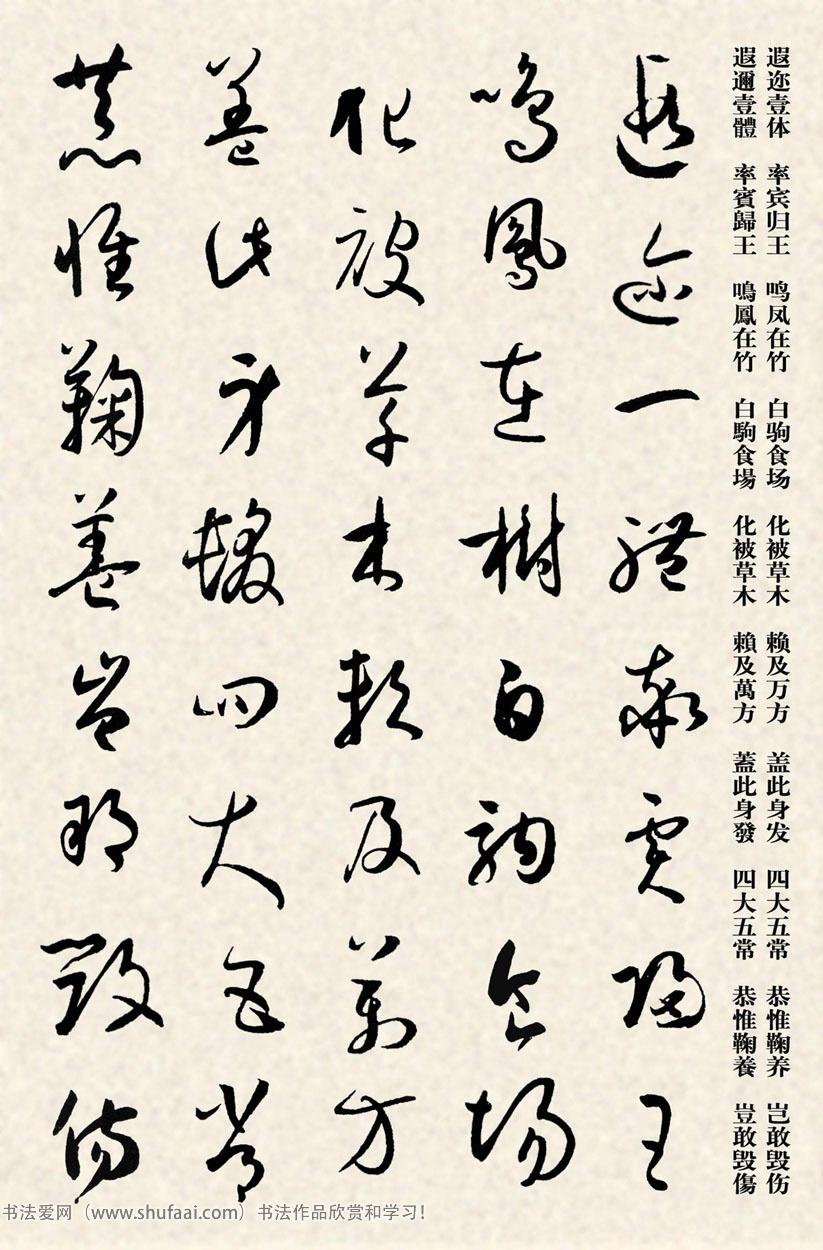 遐迩壹体 率宾归王 鸣凤在竹 白驹食场 化被草木 赖及万方 盖此身发 四大五常 恭惟鞠养 岂敢毁伤
遐邇壹體 率賓歸王 鳴鳳在竹 白駒食場 化被草木 賴及萬方 蓋此身發 四大五常 恭惟鞠養 豈敢毀傷
遐迩一體率賓歸王
鳴鳳在樹白駒食場
化被草木賴及萬方
蓋此身髮四大五常
恭惟鞠養豈敢毀傷
书法爱网（www.shufaai.com）书法作品欣赏和学习！